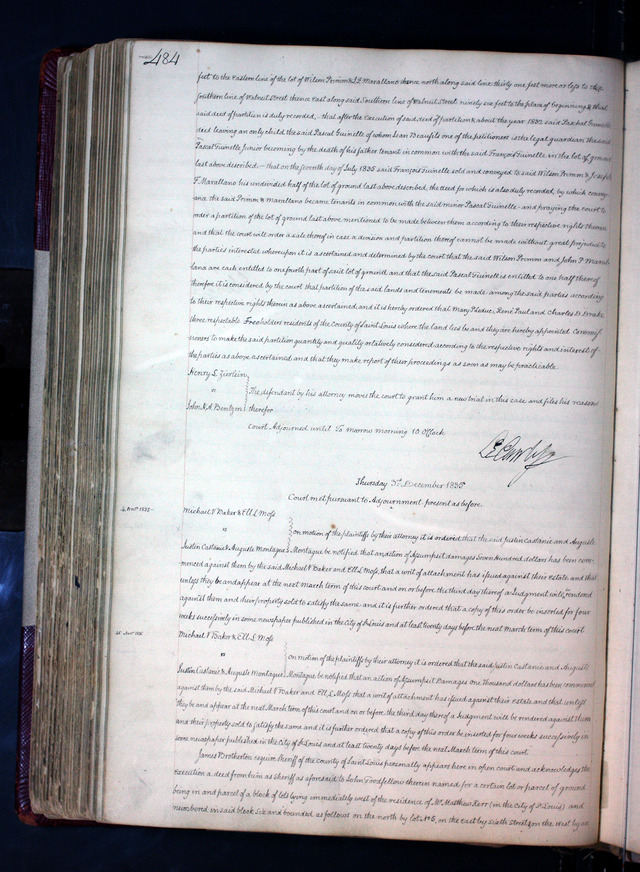 484
feet to the Eastern line of the lot of Wilson Primm & J F Marallano thence north along said line thirty one feet more or less to the
Southern line of Walnut Street thence East along said Southern line of Walnut Street ninety six feet to the place of beginning & that
said deed of partition is duly recorded,_ that after the Execution of said deed of partition & about the year 1832 said Paschal Guinelle
died leaving an only child the said Pascal Guinelle of whom Jean Beaufils one of the petitioners is the legal guardian the said
Pascal Guinelle Junior becoming by the death of his father tenant in common with the said François Guinelle in the lot of ground
last above described,_ that on the seventh day of July 1835 said François Guinelle sold and conveyed to said Wilson Primm & Joseph
F. Marallano his undivided half of the lot of ground last above described, the deed for which is also duly recorded, by which convey-
ance the said Primm & Marallano became tenants in common with the said minor Pascal Guinelle_ and praying the court to
order a partition of the lot of ground last above mentioned to be made between them according to their respective rights therein
and that the court will order a sale thereof in case a division and partition thereof cannot be made without great prejudice to
the parties interested whereupon it is ascertained and determined by the court that the said Wilson Primm and John F Maral-
lano are each entitled to one fourth part of said lot of ground, and that the said Pascal Guinelle is entitled to one half thereof
therefor it is considered by the court that partition of the said lands and tenements be made among the said parties according
to their respective rights therein as above ascertained, and it is hereby ordered that Mary Philip Leduc, René Paul and Charles D. Drake
three respectable Freeholders residents of the County of Saint Louis where the land lies be and they are hereby appointed Commiss-
ioners to make the said partition quantity and quality relatively considered according to the respective rights and interests of
the parties as above ascertained and that they make report of their proceedings as soon as may be practicable.
Henry S.
vs The defendant by his attorney moves the court to grant him a new trial in this case and files his reasons
John N.A. Bentzen therefor
Court Adjourned until To morrow morning 10 O'Clock
Thursday 3d December 1835
Court met pursuant to Adjournment present as before.
1835
Michael V Baker & Ell L Moss
vs on motion of the plaintiffs by their attorney it is ordered that the said Justin Castanie and Auguste
Justin Castanie & Auguste Montague Montague be notified that an action of Assumpsit damages Seven Hundred dollars has been com-
menced against them by the said Michael V Baker and Ell L Moss, that a writ of attachment has issued against their estate and that
unless they be and appear at the next March term of this court and on or before the third day thereof a Judgment will be rendered
against them and their property sold to satisfy the same and it is further ordered that a copy of this order be inserted for four
weeks successively in some newspaper published in the City of St Louis and at least twenty days before the next March term of this court
Michael V Baker & Ell L Moss
vs on motion of the plaintiffs by their attorney it is ordered that the said Justin Castanie and Auguste
Justin Castanie & Auguste Montague Montague be notified that an action of Assumpsit Damages One Thousand dollars has been commenced
against them by the said Michael V Baker and Ell L Moss that a writ of attachment has issued against their estate and that unless
they be and appear at the next March term of this court and on or before the third day thereof a Judgment will be rendered against them
and their property sold to satisfy the same and it is further ordered that a copy of this order be inserted for four weeks successively in
some newspaper published in the City of St Louis and at least twenty days before the next March term of this court.
James Brotherton esquire sheriff of the county of Saint Louis personally appears here in open court and acknowledges the
Execution a deed from him as sheriff as aforesaid to John Goodfellow therein named for a certain lot or parcel of ground
being in and parcel of a block of lots lying immediately west of the residence of Mr Matthew Kerr (in the city of St Louis) and
numbered in said block Six and bounded as follows on the north by lot No 5, on the east by sixth street, on the west by an